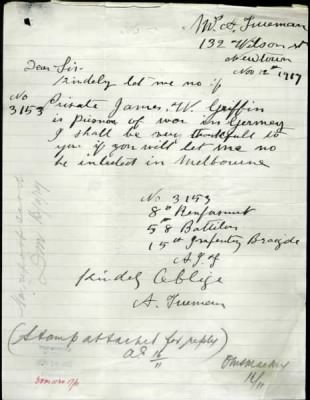 Mr A. Freeman
132 Wilson st
Newtown
Nov 12th 1917
Dear Sir
Kindely let me no if
No
3153
Private James. W. Griffin
is prisnor of war in Germey
I shall be very thankfull to
you if you will let me no
he inlisted in Melbourne
No 3153
8th Renforment
58 Battilon
15th Infentry Bragide
A.I.F
Kindely Oblige
A. Freeman
(Stamp attached for reply)
16/11
16/11